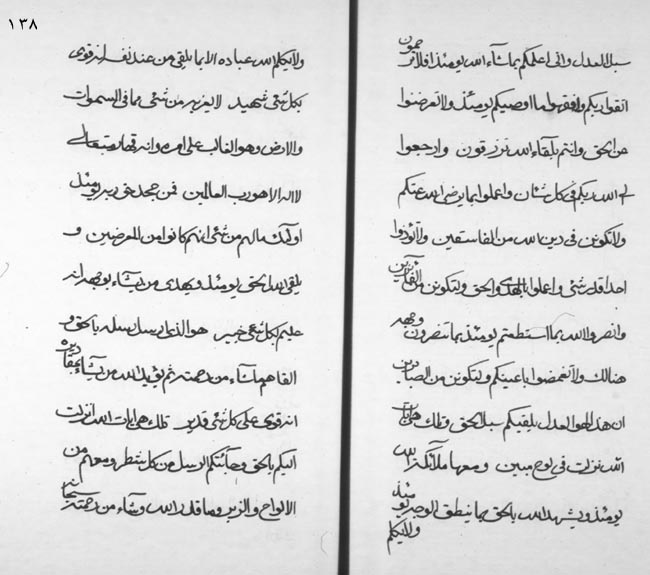 ١٣٨
سبل العدل وانى اعلمكم بما شاء الله يومئذ افلا ترحمون
اتقوا ربكم وافقهوا ما اوصيكم يومئذ ولا تعرضوا
عن الحق وانتم بلقاء الله ترزقون وارجعوا
الى الله ربكم فى كل شئان واعملوا بما يرضى الله عنكم
ولا تكونن فى دين الله من الفاسقين ولا تؤذوا
احدا قدر شئ واعلوا بالهدى والحق ولتكونن من الفائزين
وانصروا الله بما استطعتم يومئذ بما تنصرون وجهه
هنالك ولا تغمضوا باعينكم ولتكونن من الصابرين
ان هذا لهو العدل يلقيكم سبل الحق وتلك هى ايات
الله نزلت فى لوح مبين ومعها ملائكة الله
يومئذ ويشهد الله بالحق بما ينطق الوجه يومئذ
ولا يكلم
ولا يكلم الله عباده الا بما يلقى من عنده انه قوى
بكل شئ شهيد لا يعزب من شئ مما فى السموات
والارض وهو الغالب على امره وانه قهار متعالى
لا اله الا هو رب العالمين فمن جحد حق ربه يومئذ
اولئك مالهم من شئ انهم كانوا من المعرضين و
يلقى الله الحق يومئذ ويهدى من يشاء بوجهه انه
عليم بكل شئ خبير هو الذى ارسل رسله بالحق و
القاهم ما شاء من رحمته ثم يؤيد الله من يشاء بمقاديره
انه قوى على كل شئ قدير تلك هى ايات الله انزلت
اليكم بالحق وجائتكم الرسل من كل شطر ومعهم من
الالواح والزبر وما قدر الله وشاء من رحمته سبحانه